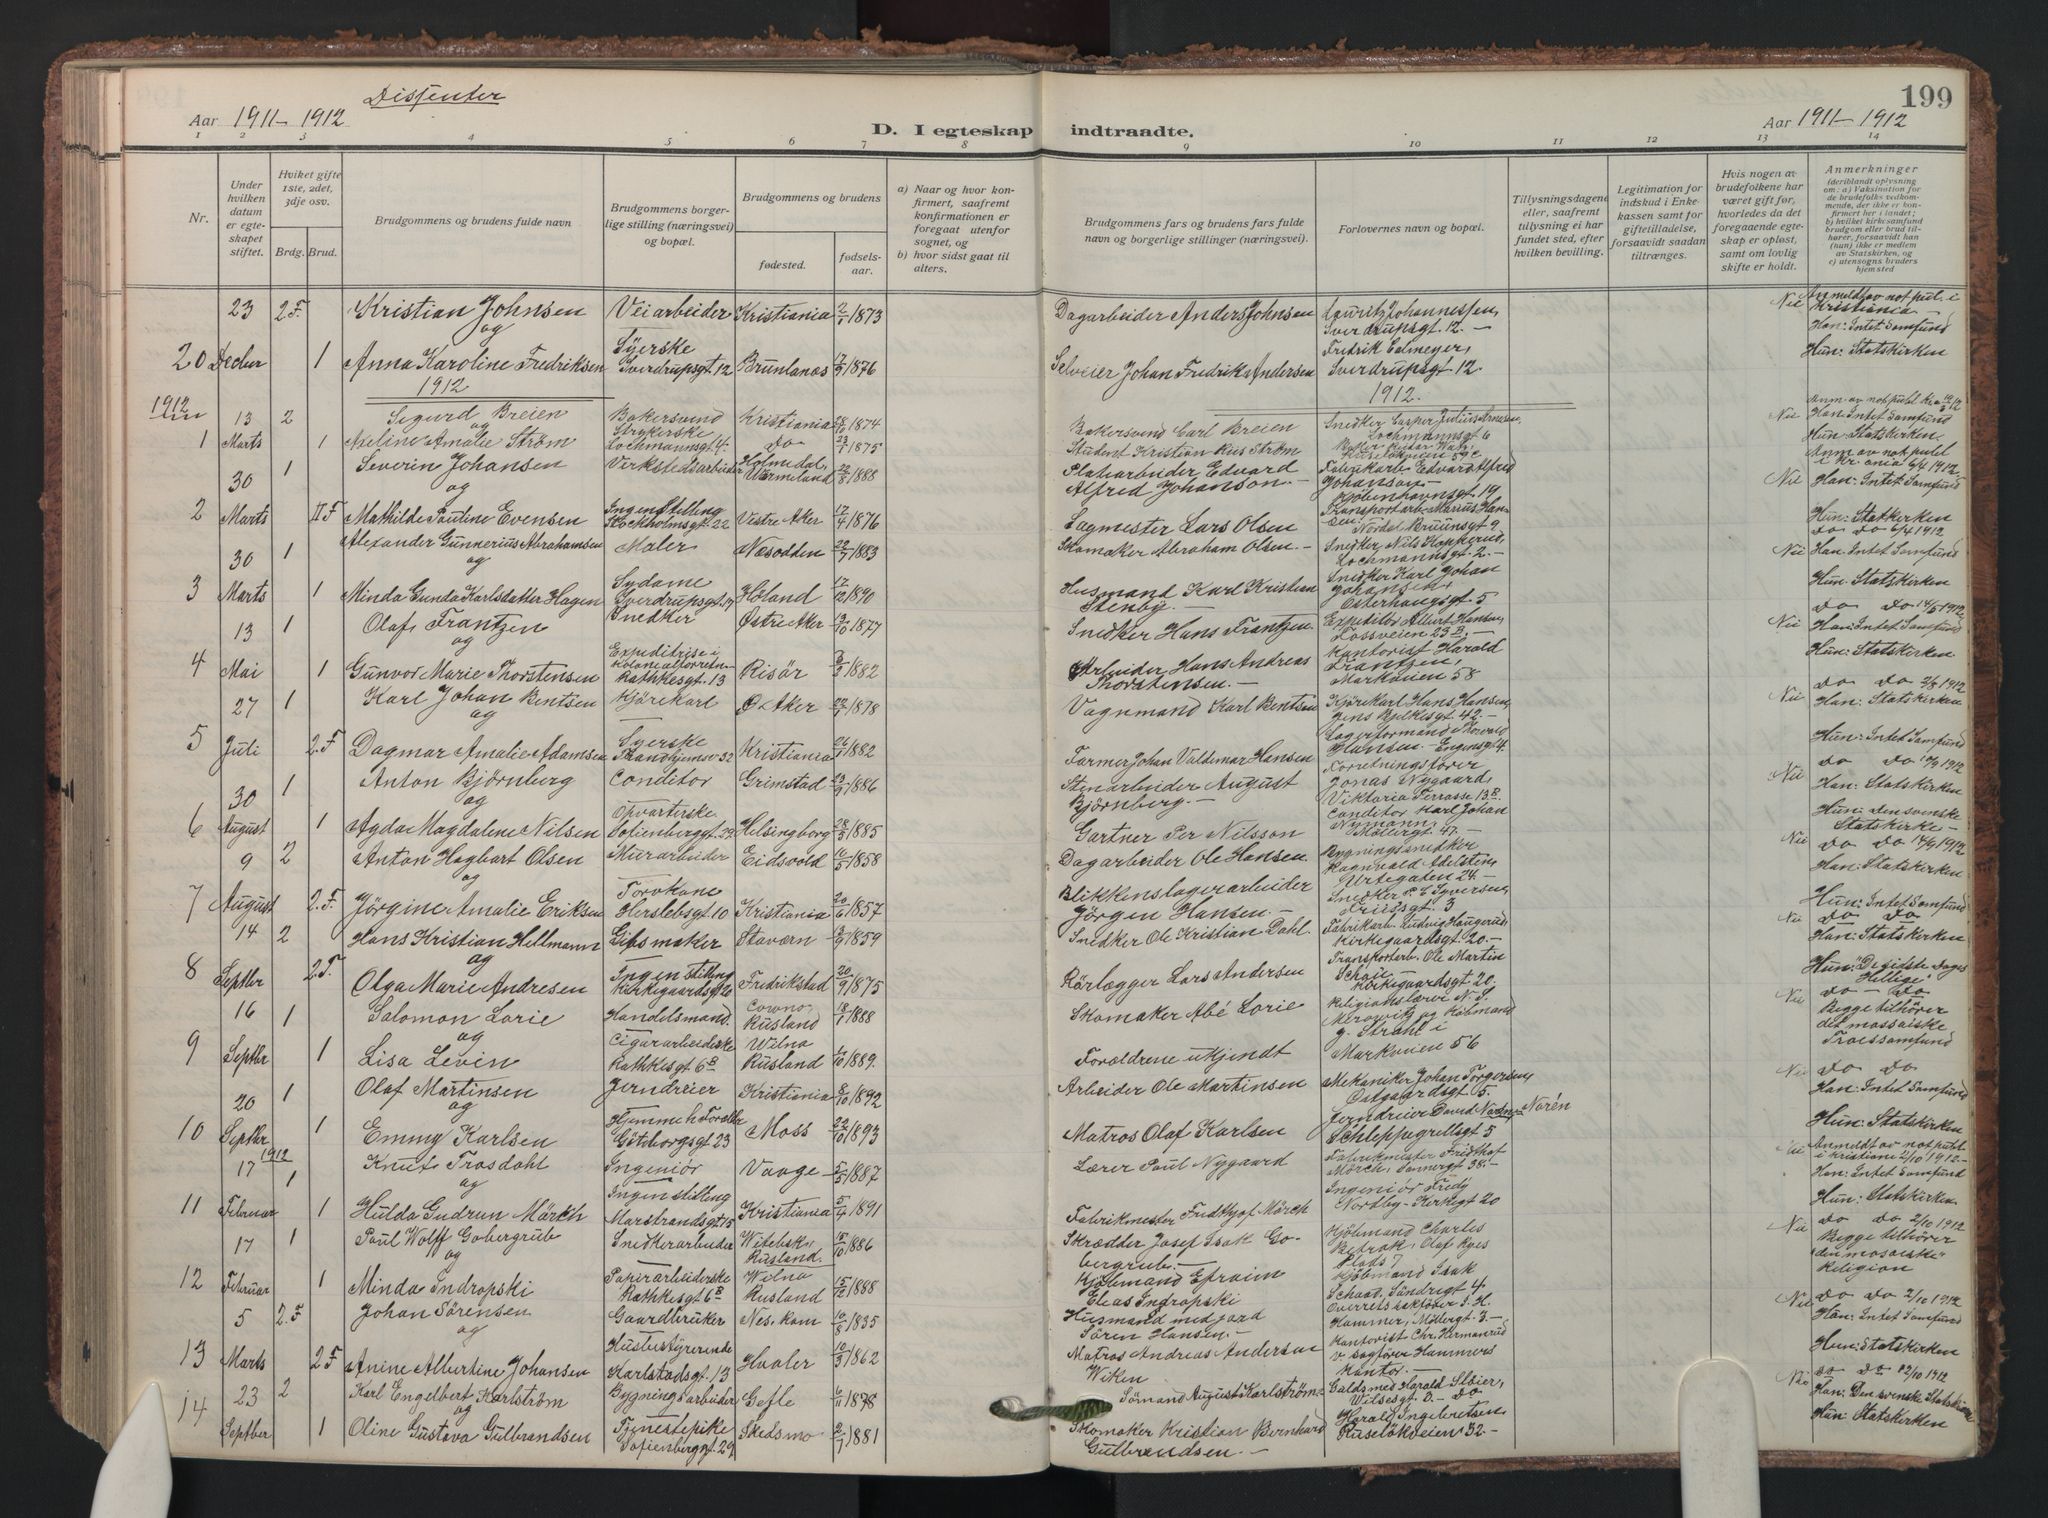 199
Dissenter
Aar 1911–1912
D. I egteskap indtraadte.
Aar 1911–1912
1 2 3 4 5 6 7 8 9 10 11 12 13 14
Nr.
Under hvilken datum er egteskapet stiftet.
Hviket gifte 1ste, 2det, 3dje osv.
Brdg. Brud.
Brudgommens og brudens fulde navn
Brudgommens borgerlige stilling (næringsvei) og bopæl.
Brudgommens og brudens
fødested.
fødselsaar.
a) Naar og hvor konfirmert, saafremt konfirmationen er foregaat utenfor sognet, og
b) hvor sidst gaat til alters.
Brudgommens fars og brudens fars fulde navn og borgerlige stillinger (næringsvei).
Forlovernes navn og bopæl.
Tillysningsdagene eller, saafremt tillysning ei har fundet sted, efter hvilken bevilling.
Legitimation for indskud i Enkekassen samt for giftetilladelse, forsaavidt saadan tiltrænges.
Hvis nogen av brudefolkene har været gift før, hvorledes da det foregaaende egteskap er opløst, samt om lovlig skifte er holdt.
Anmerkninger (deriblandt oplysning om: a) Vaksination for de brudefolks vedkommende, der ikke er konfirmert her i landet; b) hvilket kirkesamfund brudgom eller brud tilhører, forsaavidt han (hun) ikke er medlem av Statskirken, og c) utensogns bruders hjemsted
23 2.F. Kristian Johnsen Veiarbeider Kristiania 2/1 1873 Dagarbeider Anders Johnsen Lauritz Johannessen, Sverdrupsgt 12.— Nei Anmeldt av not. pul. i Kristiania— Han: Intet Samfund
og
20 Decber 1 Anna Karoline Fredriksen Syerske Sverdrupsgt. 12 Brunlanæs 17/9 1876 Selveier Johan Fredrik Andersen Sverdrupsgt 12. Hun: Statskirken
1912
1912.
1912
13 2 Sigurd Breien Bakersvend Kristiania 28/10 1874 Bakersvend Carl Breien Snedker Casper Julius Arnesen Lochmannsgt 6 Nei Han: Intet Samfund
og
1 Marts 1 Meline Amalie Strøm Strykerske Lochmannsgt. 4. do 23/7 1875 Hun: Statskirken.
30 1 Severin Johansen Verkstedsarbeider Holmedal, Vermeland 22/8 1888 Platearbeider Edvard Alfred Johanson— Fabrikarb. Edvard Alfred Johanson— Kjøbenhavnsgt 19 Nei Anm av not publ i Kr.ania 6/4 1912 Han: Intet Samfund
og
2 Marts II F Mathilde Pauline Evensen Ingen Stilling Stockholmsgt 22 Vestre Aker 17/4 1876 Sagmester Lars Olsen Transportarb. Marius Hansen— Hun: Statkirken
30 1 Alexander Gunnerius Abrahamsen Maler Næsodden 22/7 1883 Skomaker Abraham Olsen.— Snedker Nils Lochmannsgt. 2.— Nei do do 6/4 1912 Han: Intet Samfund
og
3 Marts 1 Minda Gunda Karlsdatter Hagen Sydame Sverdrupsgt. 17 Høland 17/12 1890 Husmand Karl Kristian Stenby.— Snedker Karl Johan Johansen Osterhaugsgt. 5 Hun: Statskirken
13 1 Olaf Frantzen Snedker Østre Aker 19/10 1877 Snedker Hans Frantzen Expeditør Albert Hansen Fossveien 23 B.— Nei do do 14/5 1912 Han: Intet Samfund
og
4 Mai 1 Gunvor Marie Thorstensen Expeditrise i Rathkesgt. 13 Risør 3/2 1882 Arbeider Hans Andreas Thorstensen.— Kontorist Harald Frantzen Markveien 58 Hun: Statskirken
27 1 Karl Johan Bentsen Kjørekarl Ø. Aker 22/1 1878 Vognmand Karl Bentsen Kjørekarl Hans Hansen, Jens Bjelkesgt 42.— Nei do do 2/8 1912 Han: Statskirken
og
5 Juli 2.F Dagmar Amalie Adamsen Syerske Trondhjemsv 32 Kristiania 26/1 1882 Farmer Johan Valdemar Hansen Lagerformand Thorvald Hansen— Hun: Intet Samfund
30 1 Anton Bjørnberg Conditor Grimstad 23/9 1886 Stenarbeider August Bjørnberg.— Forretningsfører Jonas Nygaard, Viktoria Terrasse 13 B Nei Han: Statskirken
og
6 August 1 Agda Magdalene Nilsen Opvarterske Sofienberggt. 29 Helsingborg 28/5 1885 Gartner Per Nilsson Conditor Karl Johan Nymann, Møllergt 47.— Hun: den svenske Statskirke—
9 2 Anton Hagbart Olsen Murarbeider Eidsvold 16/5 1858 Dagarbeider Ole Hansen. Bygningssnedker Ragnvald Adelsten Urtegaten 24.— Nei do do Han: Statskirken
og
7 August 2.F. Jørgine Amalie Eriksen Torvkone Herslebsgt. 10 Kristiania 20/6 1857 Blikkenslagerarbeider Jørgen Hansen.— Snedker Syversen Friisgt. 3 Hun: Intet Samfund
14 2 Hans Kristian Hellmann Gibsmaker Stavern 13/9 1859 Snedker Ole Kristian Dahl. Fabrikarb. Ludvig Haugerud Kirkegaardsgt 20.— Nei do do Han: Statskirken
og
8 Septbr 2.F. Olga Marie Andresen Ingen stilling Kirkegaardsgt 20 Fredrikstad 20/9 1875 Rørlægger Lars Andersen Transportarb. Ole Martin Kirkegaardsgt 20. Hun: "De sidste dages Hellige"
16 1 Salomon Lorie Handelsmand. Cowno, Rusland 18/1 1888 Skomaker Abé Lorie Religionslærer Nei do – do Begge tilhører det mosaiske Troessamfund
og
9 Septbr 1 Lisa Levin Cigararbeiderske Rathkesgt 6 B Wilna Rusland 1/10 1889. Forældrene ukjendt Markveien 56
20 1 Olaf Martinsen Jerndreier Kristiania 8/10 1892 Arbeider Ole Martinsen Mekaniker Johan Torgersen, Østgaardsgt 5. Nei do do Han: Intet Samfund
og
10 Septbr 1 Emmy Karlsen Hjemme h. Forældre Göteborgsgt 23 Moss 22/10 1893 Matros Olaf Karlsen Jerndreier David Norén Schleppegrellsgt 5 Hun: Statskirken
17 1912 1 Knut Trosdahl Ingeniør Vaage 5/5 1887 Lærer Paul Nygaard Fabrikmester Fridthof Mørch, 38.— Nei Anmeldt av not publ i Kristiania 2/10 1912— Han: Intet Samfund
og
11 Februar 1 Hulda Gudrun Mørch Ingen stilling Marstrandsgt 15 Kristiania 5/4 1891 Fabrikmester Fredthjof Mørch Ingeniør Fredy Nordby— Kirkegt 20 Hun: Statskirken
17 1 Paul Wolff Gobergrub Snedkerarbeider Witebsk, Rusland. 15/10 1886 Skrædder Josef Isak Gobergrub.— Kjøbmand Charles Olaf Ryes Plads 7 Nei do do 2/10 1912 Begge tilhører den mosaiske Religion
og
12 Februar 1 Minda Indropski Papirarbeiderske Rathkesgt. 6 B Wilna Rusland 15/12 1888 Kjøbmand Efraim Eleas Indropski Kjøbmand Isak
5 2.F Johan Sørensen Gaardbruker Nes. kom 10/8 1835 Husmand med jord Søren Hansen.— Overretssakfører Hammer, Møllergt. 3.— Nei do do 2/10 1912 Han: Intet Samfund
og
13 Marts 2F Anine Albertine Johansen Husbestyrerinde Karlstadsgt. 13 Hvaler 10/3 1862 Matros Andreas Andersen Wiken Kontorist Chr. Hermanrud v. sagfører Hammers Kontor. Hun: Statskirken
23 2 Karl Engelbert Karlstrøm Bygningsarbeider Gefle 6/11 1878 Sømand August Karlstrøm— Guldsmed Harald Nei do do 12/10 1912 Han: Den svenske Statskirke
og
14 Septber 1 Oline Gustava Gulbrandsen Tjenestepike Sofienberggt. 29 Skedsmo 2/7 1881 Skomaker Kristian Bernhard Gulbrandsen.— Harald Ingebretsen Ruseløkveien 32— Hun: Statskirken